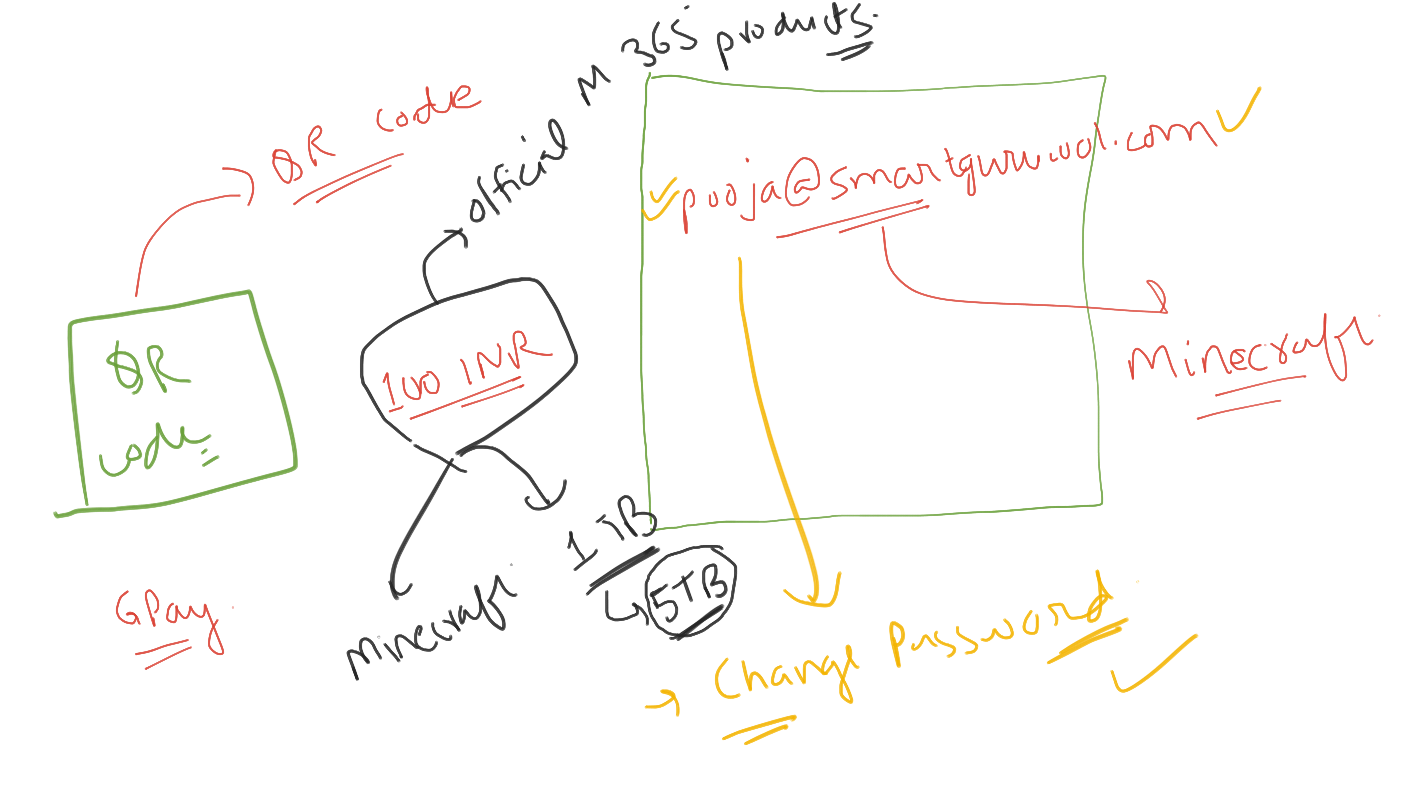 QR code
QR
code
GPay
official M 365 products.
100 INR
Minecraft
1 TB
5TB
Minecraft
→ Change Password